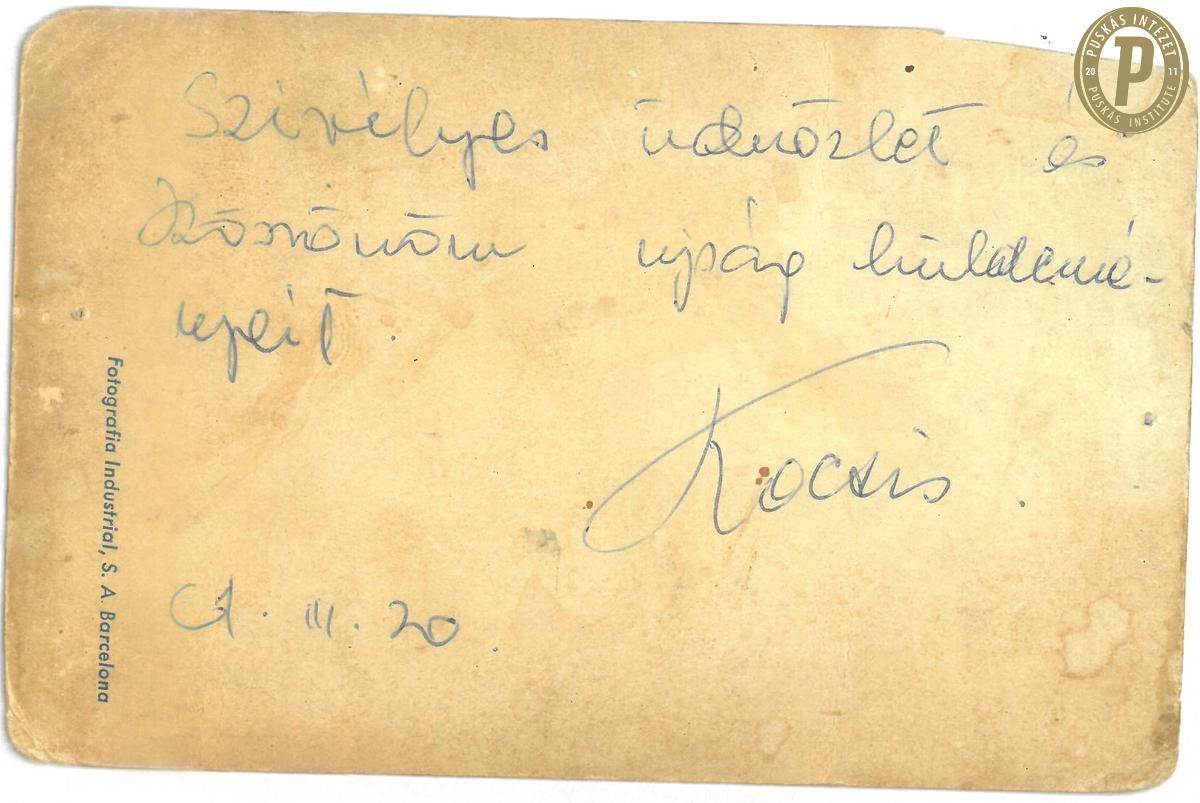 Szivélyes üdvözlet és
köszönöm ujság küldemé-
nyeit.
Kocsis.
61. III. 20.
Fotografia Industrial, S. A. Barcelona
PUSKÁS INTÉZET
20 P 11
PUSKÁS INSTITUTE